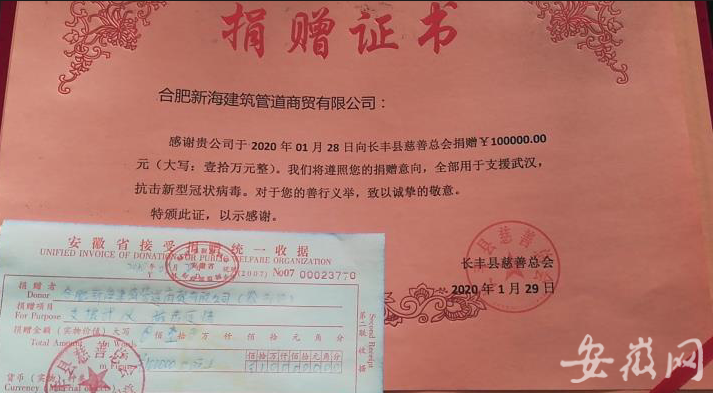 捐赠证书
合肥新海建筑管道商贸有限公司：
感谢贵公司于 2020 年 01 月 28 日向长丰县慈善总会捐赠￥100000.00
元（大写：壹拾万元整）。我们将遵照您的捐赠意向，全部用于支援武汉，
抗击新型冠状病毒。对于您的善行义举，致以诚挚的敬意。
特颁此证，以示感谢。
长丰县慈善总会
2020 年 1 月 29 日
县慈善总会
安徽省接受捐赠统一收据
UNIFIED INVOICE OF DONATION FOR PUBLIC WELFARE ORGANIZATION
(2007) №07 00023770
捐赠者
Donor
合肥新海建筑管道商贸有限公司
捐赠项目
For Purpose
支援武汉
捐赠金额（实物价值）大写 佰 拾 万 仟 佰 拾 元 角 分
Total Amount
佰拾万仟佰拾元角分
货币（实
Currency
第二联 收据
Second
县慈善总会
安徽网